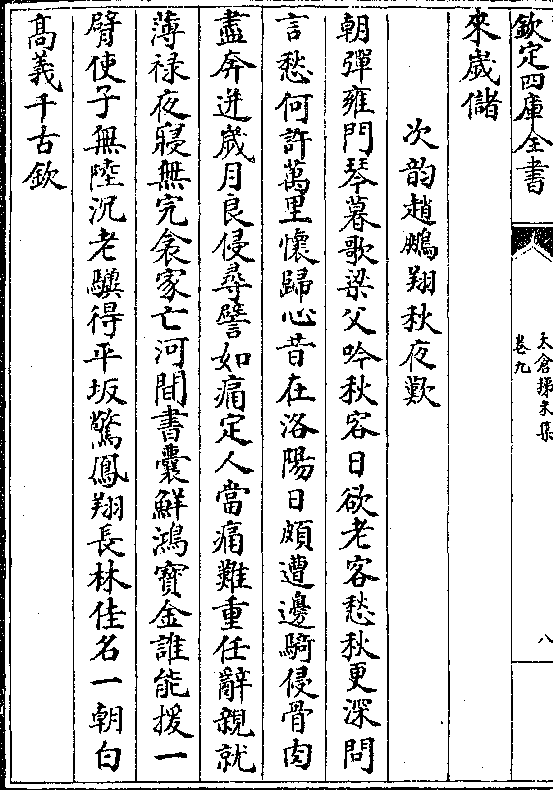 欽定四庫全書
太倉稊米集
卷九
八
來歲儲
次韵趙鵬翔秋夜歎
朝彈雍門琴暮歌梁父吟秋容日欲老客愁秋更深問
言愁何許萬里懷歸心昔在洛陽日頗遭邊騎侵骨肉
盡奔迸歲月良侵尋譬如痛定人當痛難重任辭親就
薄祿夜寢無完衾家亡河間書囊鮮鴻寶金誰能援一
臂使子無陸沉老驥得平坂驚鳳翔長林佳名一朝白
髙義千古欽